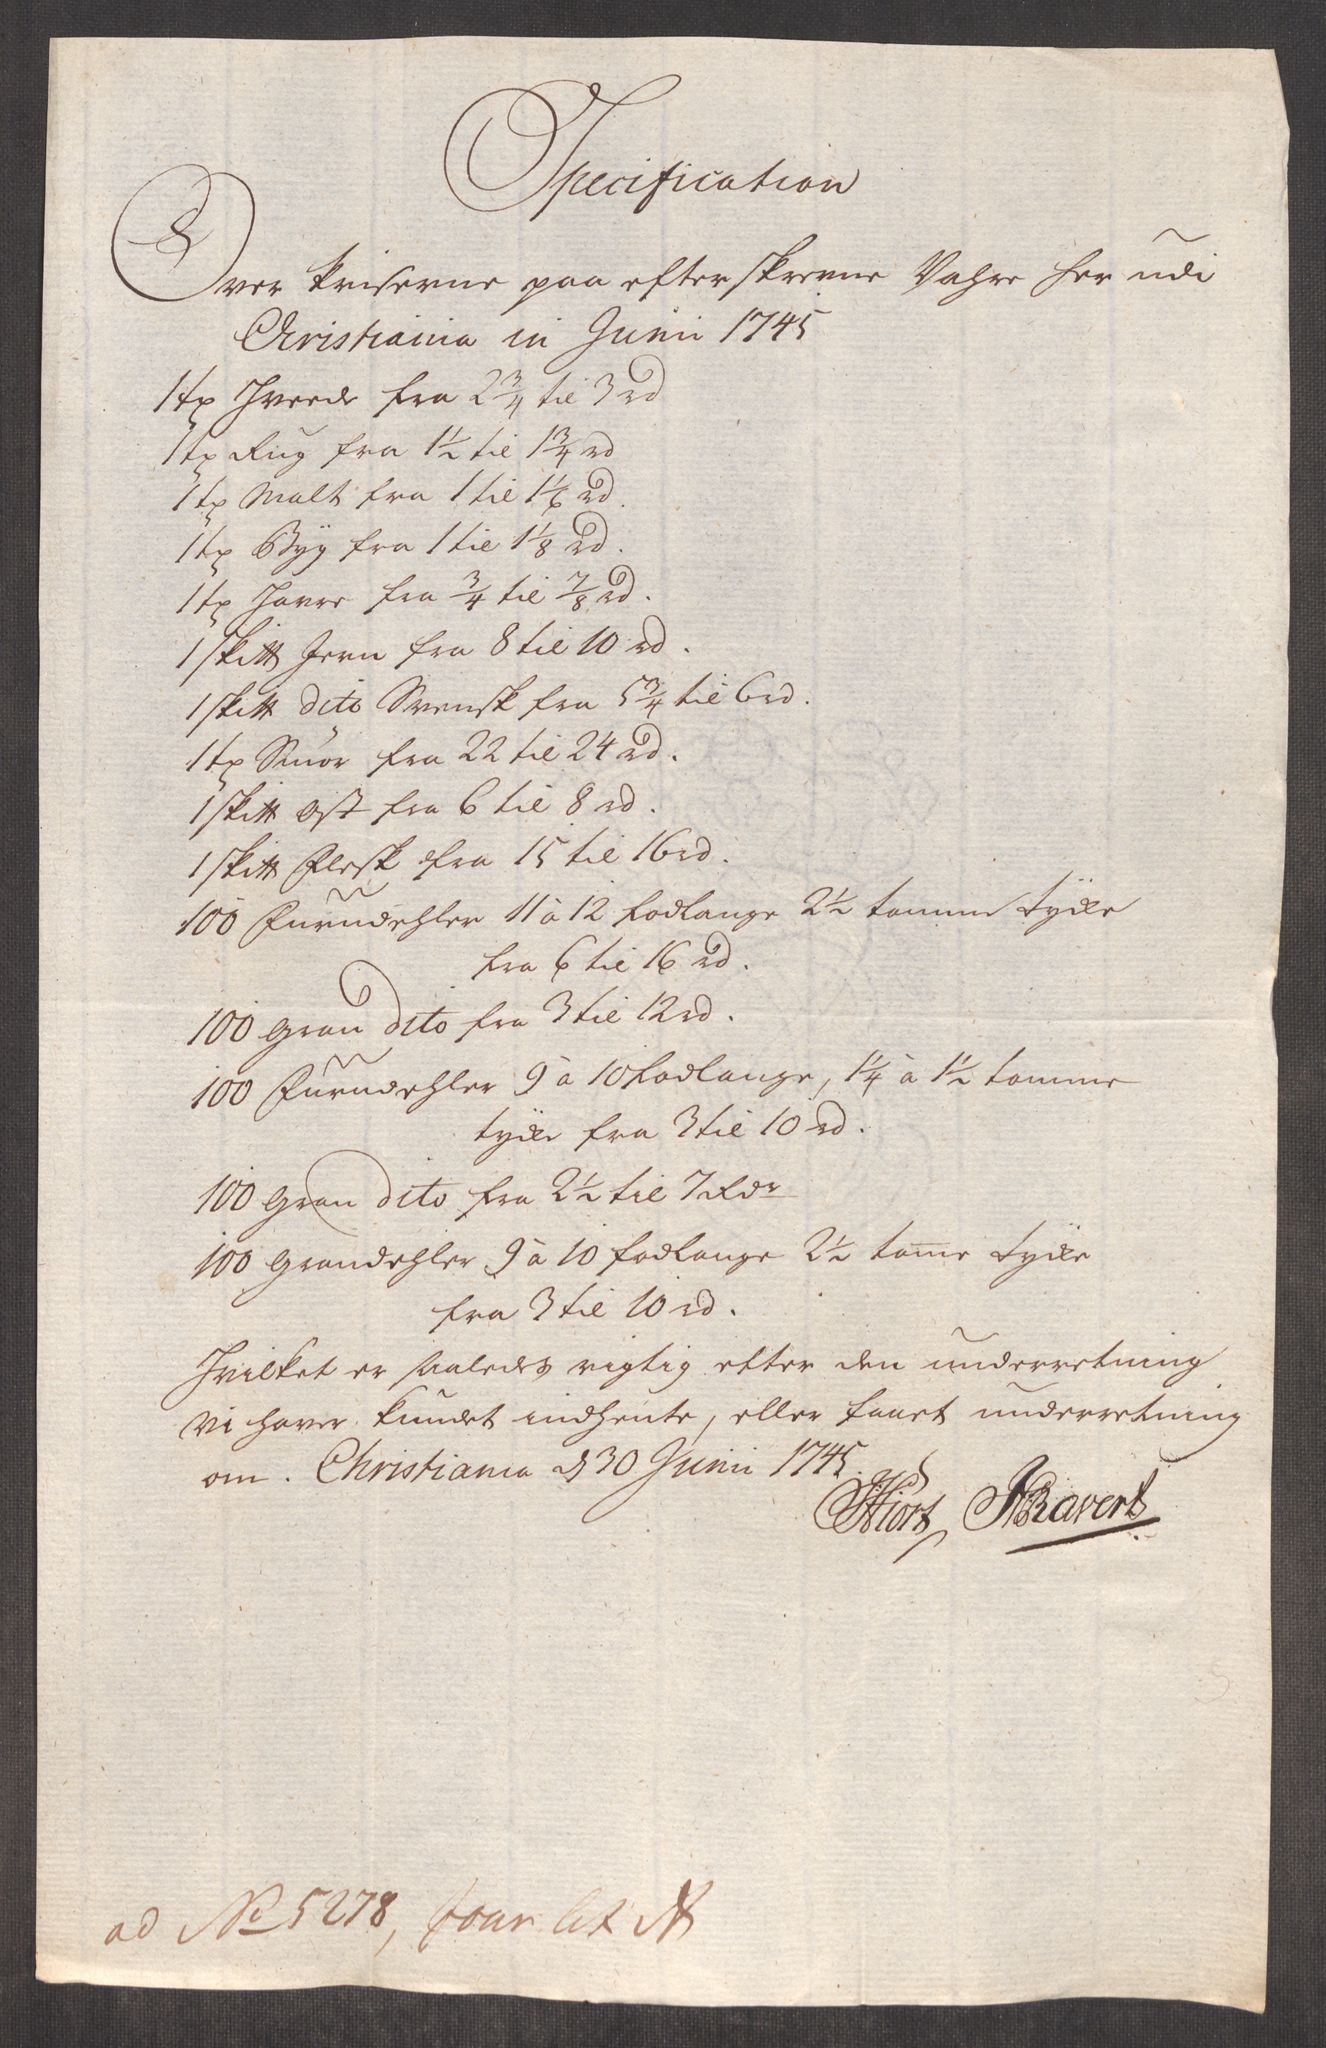 Specification
Over Priserne paa efterskrevne Vahre her udi
Christiania in Junii 1745
1 tø Hvede fra 2 3/4 til 3 rd
1 tø Rug fra 1 1/2 til 1 3/4 rd
1 tø Malt fra 1 til 1 1/6 rd.
1 tø Byg fra 1 til 1 1/8 rd.
1 tø Havre fra 3/4 til 7/8 rd.
1 skƚƚ Jern fra 8 til 10 rd.
1 skƚƚ dito Svensk fra 5 3/4 til 6 rd.
1 tø Smør fra 22 til 24 rd.
1 skƚƚ Ost fra 6 til 8 rd.
1 skƚƚ Flesk fra 15 til 16 rd.
100 Furudehler 11 a 12 fodlange 2 1/2 tomme tycke
fra 6 til 16 rd.
100 Gran dito fra 3 til 12 rd.
100 Furudehler 9 a 10 fodlange, 1 1/4 a 1 1/2 tomme
tycke fra 3 til 10 rd.
100 Gran dito fra 2 1/2 til 7 Rdr
100 Grandehler 9 a 10 fodlange 2 1/2 tom̅e tycke
fra 3 til 10 rd.
Hvilket er saaledes rigtig efter den underretning
vi haver kundet indhente, eller faaet underretning
om. Christiania d 30 Junii 1745.
Hiort Ravert
ad No 5278, lit